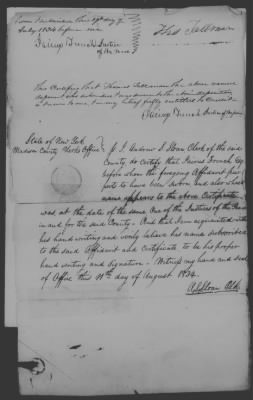 Sworn & subscribed this 29th day of
July 1834 before me
Thos Tallman
Justice
of the Peace
This Certifies that Thomas Tallman the above named
deponent who
is known to me, & is fully entitled to Credit
Justice of the peace
State of New York
Madison County Clerks Office
I Andrew S. Sloan Clerk of the said
County do Certify that French Esq
before whom the foregoing Affidavit pur
port to have been sworn and also whose
name appears to the above Certificate
was at the date of the same One of the Justices of the Peace
in and for the said County. And that I am acquainted with
his hand writing and verily believe his name subscribed
to the said Affidavit and Certificate to be his proper
hand writing and signature. Witness my hand and seal
of Office this 11th day of August 1834.
A S Sloan Clk